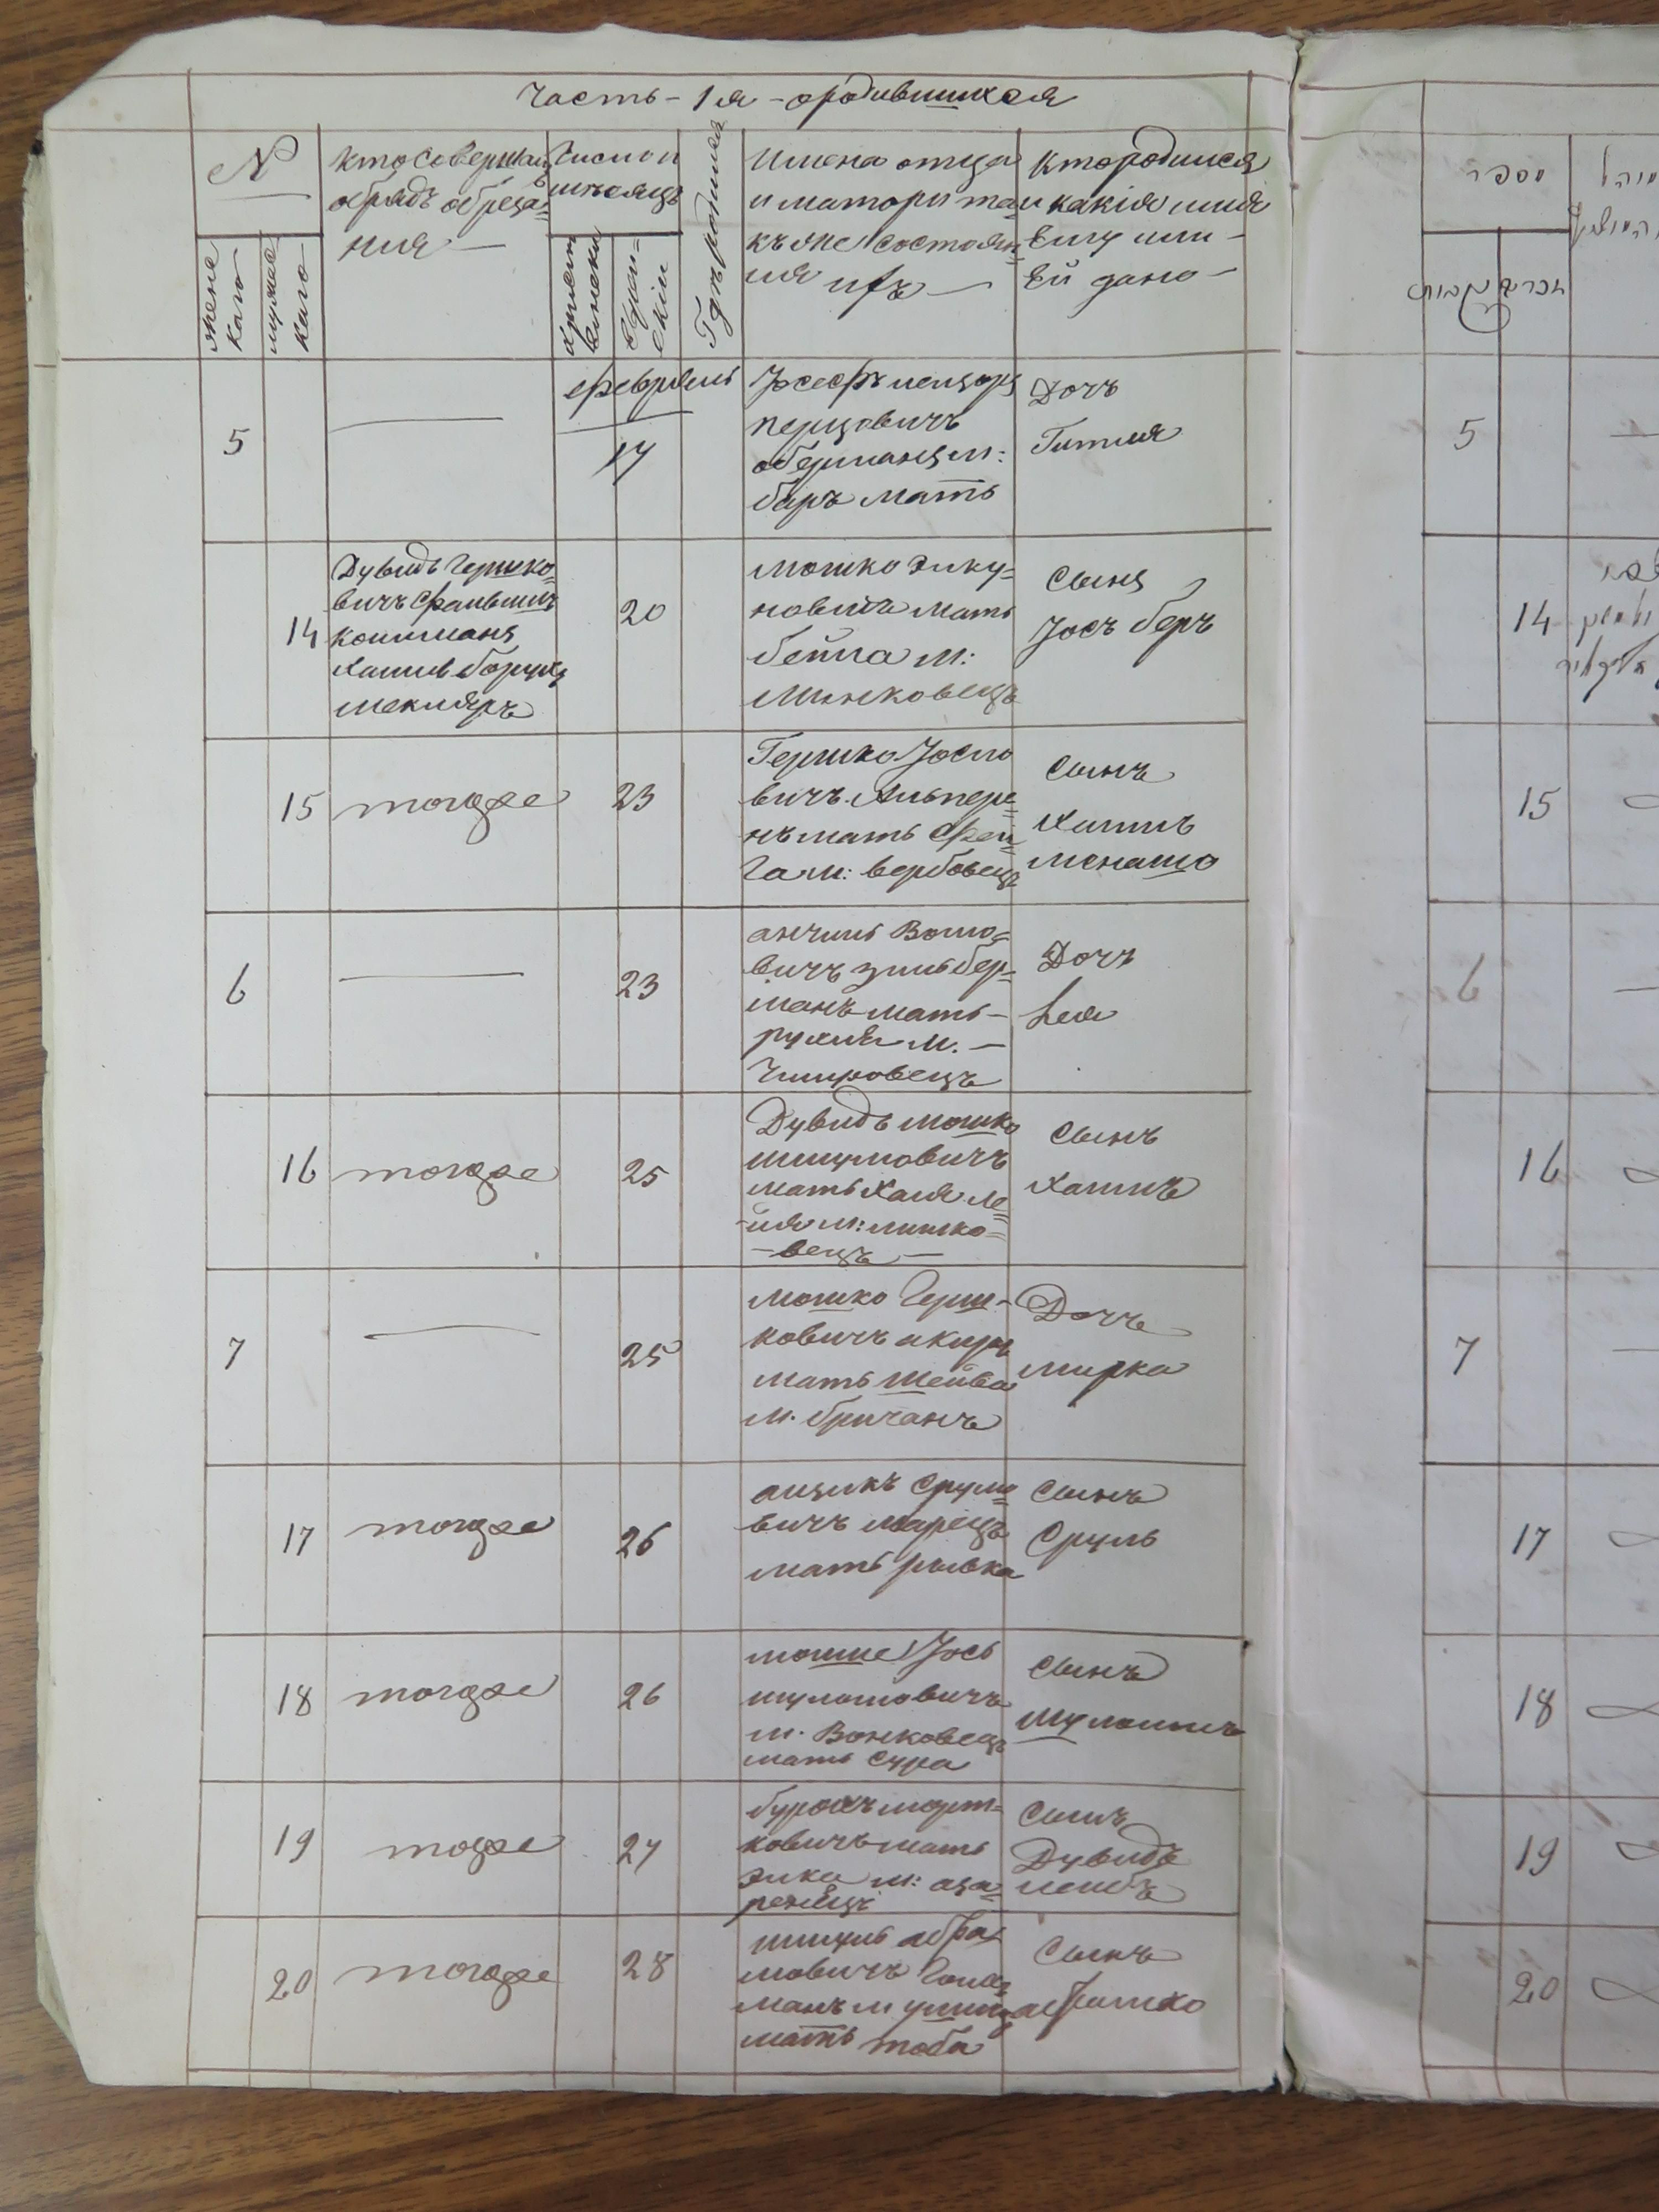 Часть - 1я - ородившихся
№
женс
каго
мужес
каго
кто Совершал
обрядъ обреза=
ния —
Число и
мъсяцъ
христи
янски
еврей
скiи
Гдъ родился
имена отца
и матори та
къже состоян
ия ихъ —
кто родился
и какiя имя
Ему или -
Ей дано -
5
февраль
17
Iосефъ лейзоръ
перцовичъ
оберманъ м:
баръ мать
Дочъ
Гитля
14
Дувидъ Гершко=
вичъ
Хаимъ борухъ
мекляръ
20
мошко элку=
новичъ мать
бейла м:
Минковецъ
Сынъ
Iосъ беръ
15
тогоже
23
Гершко Iосио
вичъ Альпере=
нъ мать Фей=
га м: вербовецъ
Сынъ
Хаимъ
менашо
6
23
анчиль Волко=
вичъ зильбер=
манъ мать -
рухля м. -
Чемировецъ
Дочъ
Лея
16
тогоже
25
Дувидъ мошко
шмулювичъ
мать Хая ле=
ия м: линко=
- вецъ —
Сынъ
Хаимъ
7
25
мошко Герш-
ковичъ
мать Шейва
м. бричанъ
Дочъ
мирка
17
тогоже
26
аицикъ Срулю=
вичъ
мать рывка
Сынъ
Сруль
18
тогоже
26
мошше Iось
шулимовичъ
м. Вонковецъ
мать Сура
Сынъ
Шулимъ
19
тогже
27
бурохъ морт=
ковичъ мать
элка м:
Сынъ
Дувидъ
лейбъ
20
тогоже
28
шмуль абра
мовичъ
манъ м ушицъ
мать тоба
Сынъ
абрамко
מספר
5
14
15
6
16
7
17
18
19
20